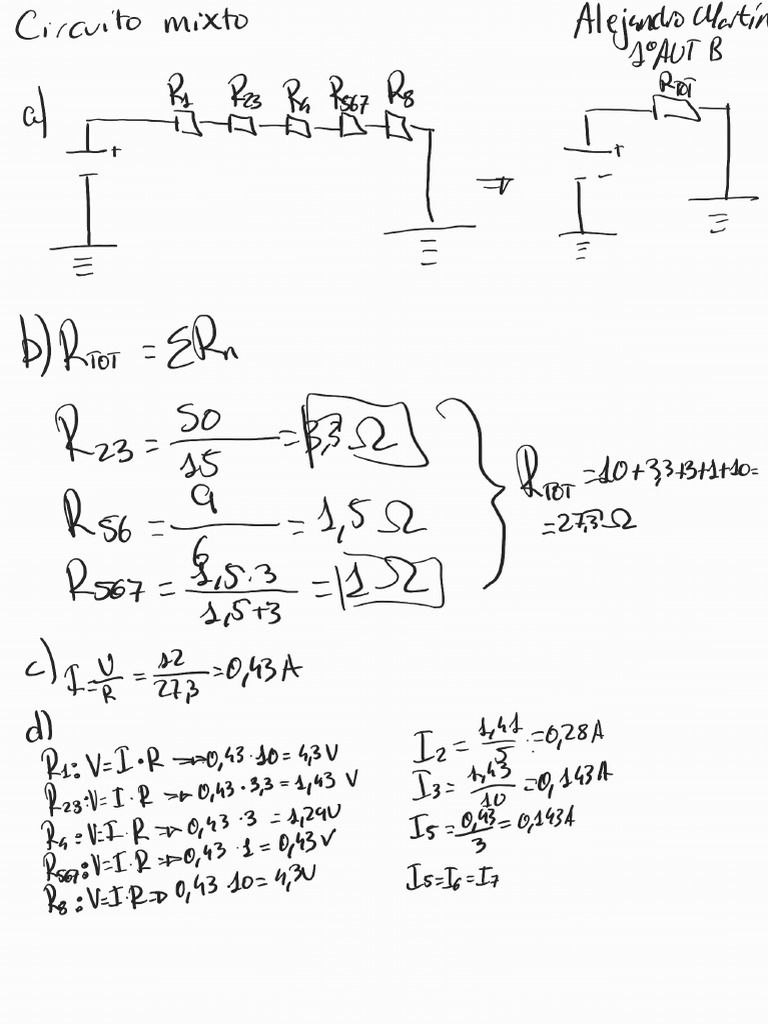 Circuito mixto
Alejandro Martín
1ºAUT B
a)
R1 R23 R4 R567 R8
+
⇒
RTOT
+
-
b) RTOT = ΣRn
R23 = 50/15 = 3,3 Ω
R56 = 9/6 = 1,5 Ω
R567 = 1,5·3/1,5+3 = 1 Ω
RTOT = 10+3,3+3+1+10=
=27,3 Ω
c) I = V/R = 12/27,3 = 0,43 A
d)
R1: V=I·R → 0,43·10=4,3 V
R23: V=I·R → 0,43·3,3=1,43 V
R4: V=I·R → 0,43·3=1,29V
R567: V=I·R → 0,43·1=0,43 V
R8: V=I·R ⇒ 0,43·10=4,3V
I2 = 1,41/5 = 0,28A
I3 = 1,43/10 = 0,143A
I5 = 0,43/3 = 0,143A
I5=I6=I7